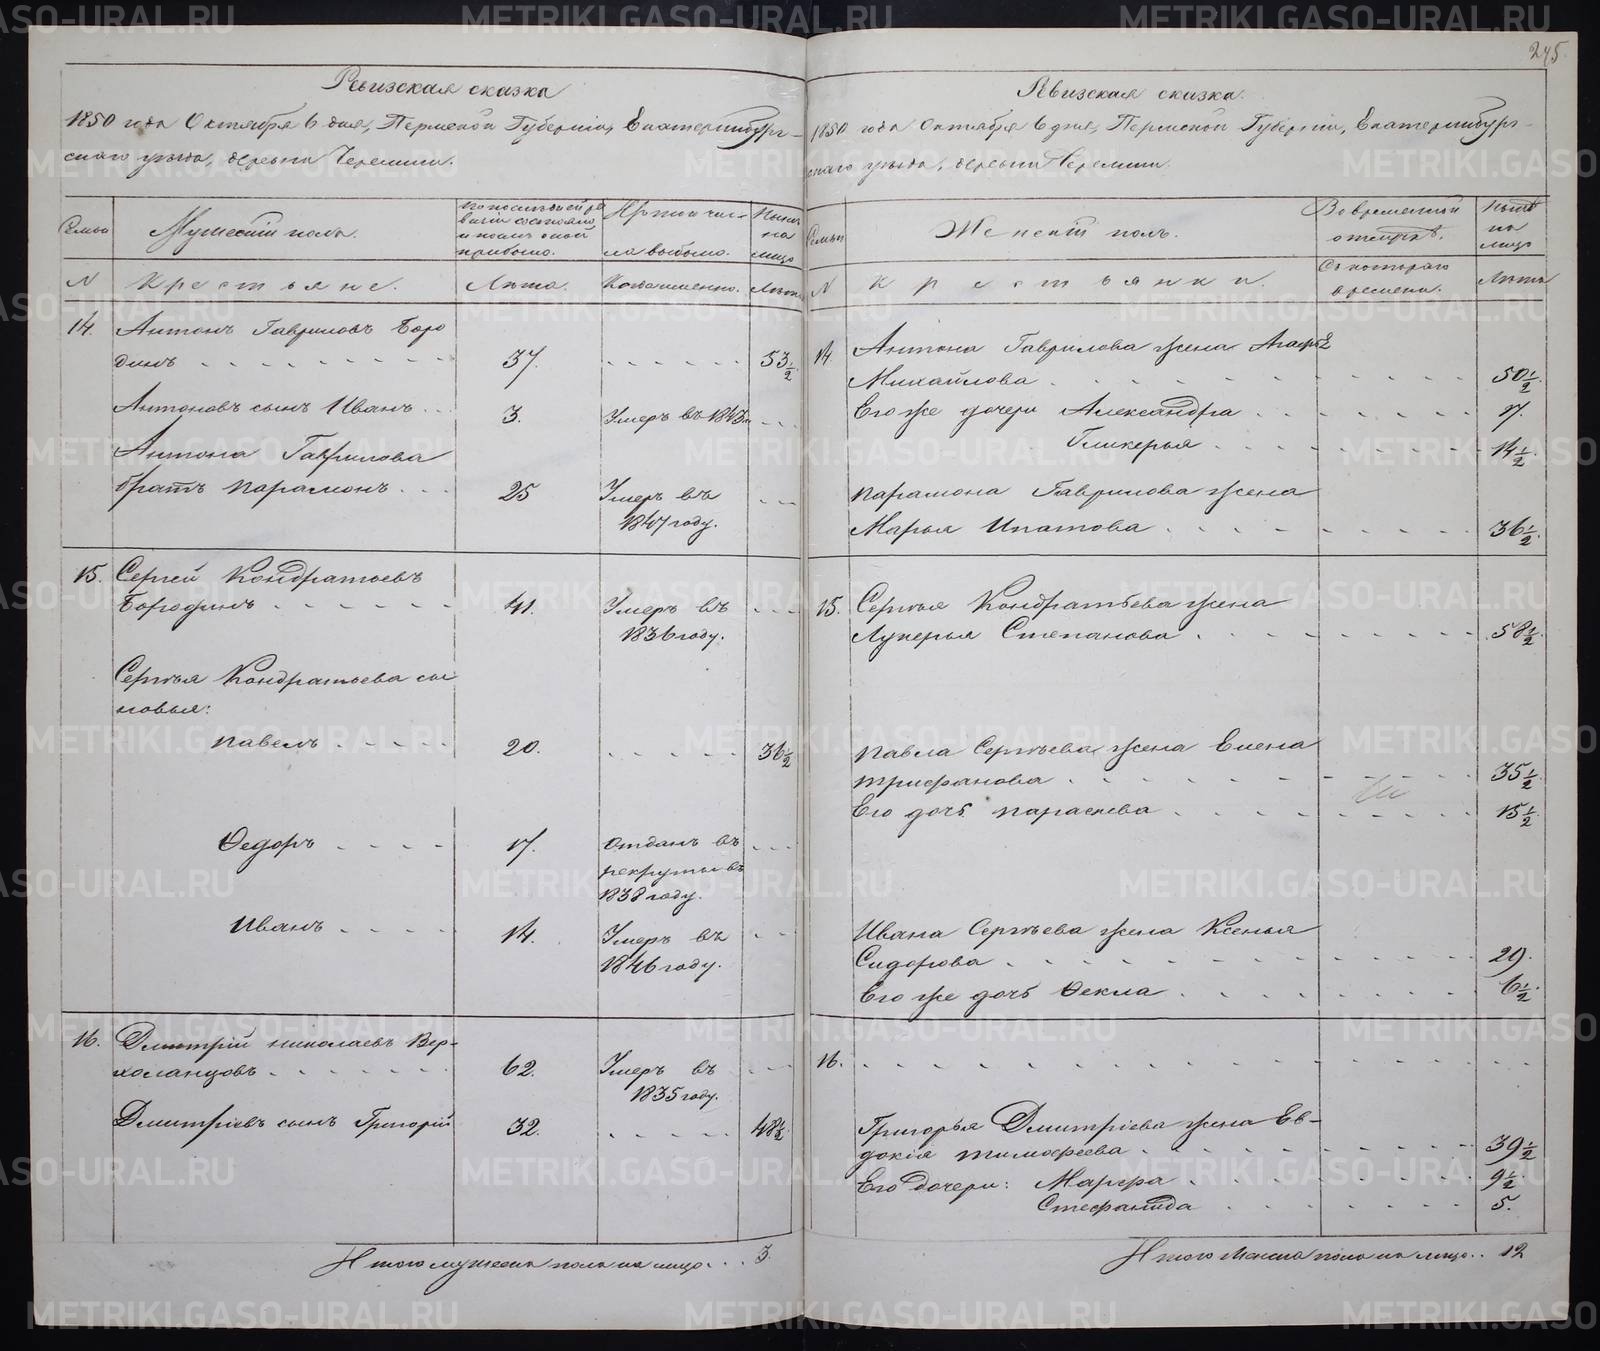 245
Ревизская сказка
1850 года Октября 6 дня, Пермской Губернiи, Екатеринбург-
скаго уѣзда, деревни Черемши.
Семьи
Мужескiй полъ.
По послѣдней ре
визiи состояло
и послѣ оной
прибыло.
Изъ того чис-
ла выбыло.
Нынѣ
на
лицо
N
Крестьяне.
Лѣта.
Когда именно.
Лѣта
14. Антонъ Гавриловъ Боро
динъ . . . . . . . . . 37. . . . . . . 53 1/2
Антоновъ сынъ Иванъ . . 3. Умеръ въ 1843 . . .
Антона Гаврилова
братъ Парамонъ . . . 25 Умеръ въ . . .
1847 году.
15. Сергей Кондратьевъ
Бородинъ . . . . . . 41. Умеръ въ . . .
1836 году.
Сергѣя Кондратьева сы
новья:
Павелъ . . . . 20. . . . . . 36 1/2
Ѳедоръ . . . . 17. Отданъ въ . . .
рекруты въ
1838 году.
Иванъ . . . . 14. Умеръ въ . . .
1846 году.
16. Дмитрiй Николаевъ Вер-
холанцовъ . . . . . . 62. Умеръ въ . . .
1835 году.
Дмитрiевъ сынъ Григорiй 32. . . . . . 48 1/2
Итого мужеска пола на лицо . . . 3.
Ревизская сказка.
1850 года Октября 6 дня, Пермской Губернiи, Екатеринбург-
скаго уѣзда, деревни Черемши.
Семьи
Женскiй полъ.
Во временной
отлучкѣ.
Нынѣ
на
лицо
N
Крестьянки.
Съ котораго
времени.
Лѣта
14 Антона Гаврилова жена Агафья
Михайлова . . . . . . . . . . 50 1/2.
Его же дочери Александра . . . . . . 17.
Гликерья . . . . . . . 14 1/2.
Парамона Гаврилова жена
Марья Ипатова . . . . . . . . 36 1/2.
15. Сергѣя Кондратьева жена
Лукерья Степанова . . . . . . . . 58 1/2.
Павла Сергѣева жена Елена
Трифанова . . . . . . . . . . 35 1/2.
Его дочь Параскева . . . . . . . . 15 1/2.
Ивана Сергѣева жена Ксенья
Сидорова . . . . . . . . . . . 29.
Его же дочь Ѳекла . . . . . . . . 6 1/2.
16. . . . . . . . . . . . . . . .
Григорья Дмитрiева жена Ев-
докiя Тимофеева . . . . . . . . 39 1/2.
Его дочери: Марфа . . . . . . . 9 1/2.
Стефанида . . . . . . . 5.
Итого женска пола на лицо . . 12
METRIKI.GASO-URAL.RU